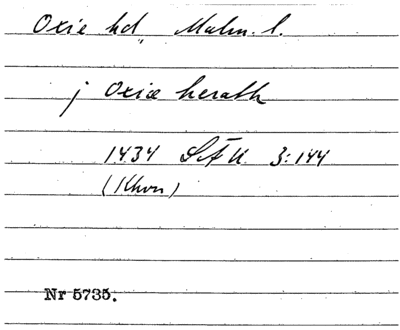 Oxie hd, Malm. l.
j Oxiæ herath
1434 SFSU 3:144
(Khvn)
Nr 5735.